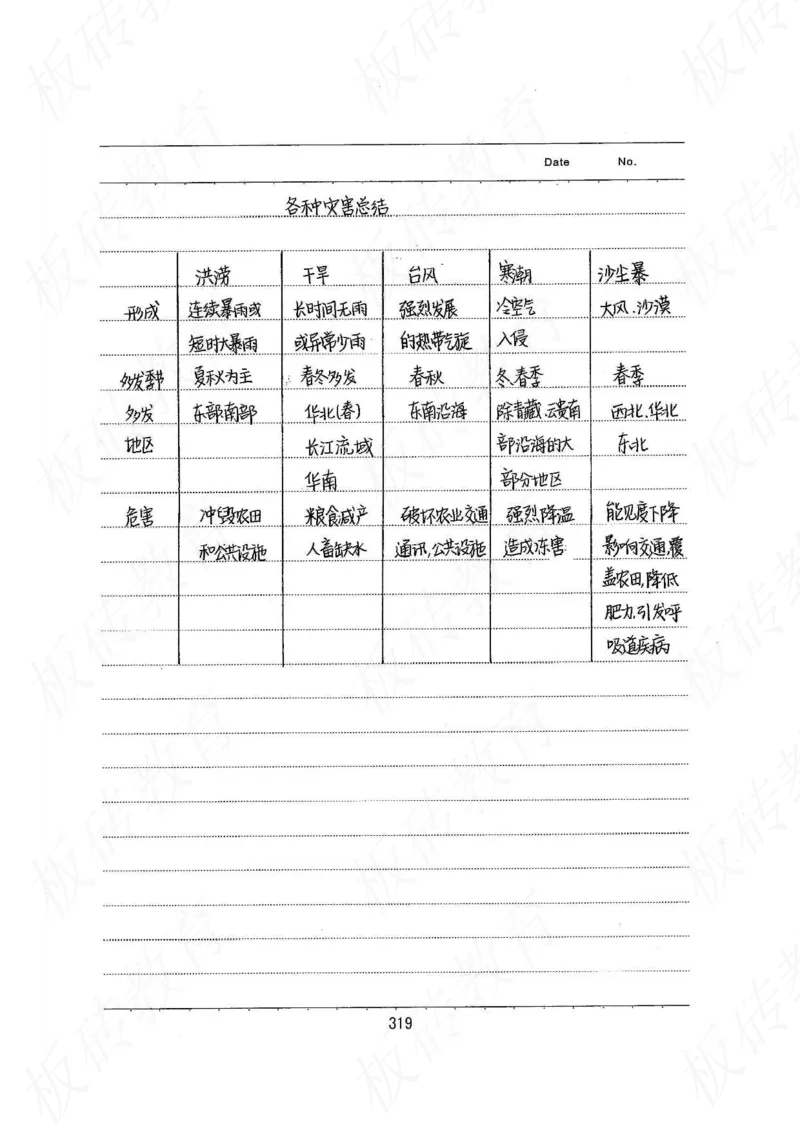 Date No.
各种灾害总结
洪涝 干旱 台风 寒潮 沙尘暴
形成 连续暴雨或 长时间无雨 强烈发展 冷空气 大风、沙漠
短时大暴雨 或异常少雨 的热带气旋 入侵
多发季节 夏秋为主 春冬多发 春秋 冬、春季 春季
多发 东部南部 华北(春) 东南沿海 除青藏、云贵南 西北、华北
地区 长江流域 部沿海的大 东北
华南 部分地区
危害 冲毁农田 粮食减产 破坏农业交通 强烈降温 能见度下降
和公共设施 人畜缺水 通讯,公共设施 造成冻害 影响交通,覆
盖农田,降低
肥力,引发呼
吸道疾病
319
板砖教育